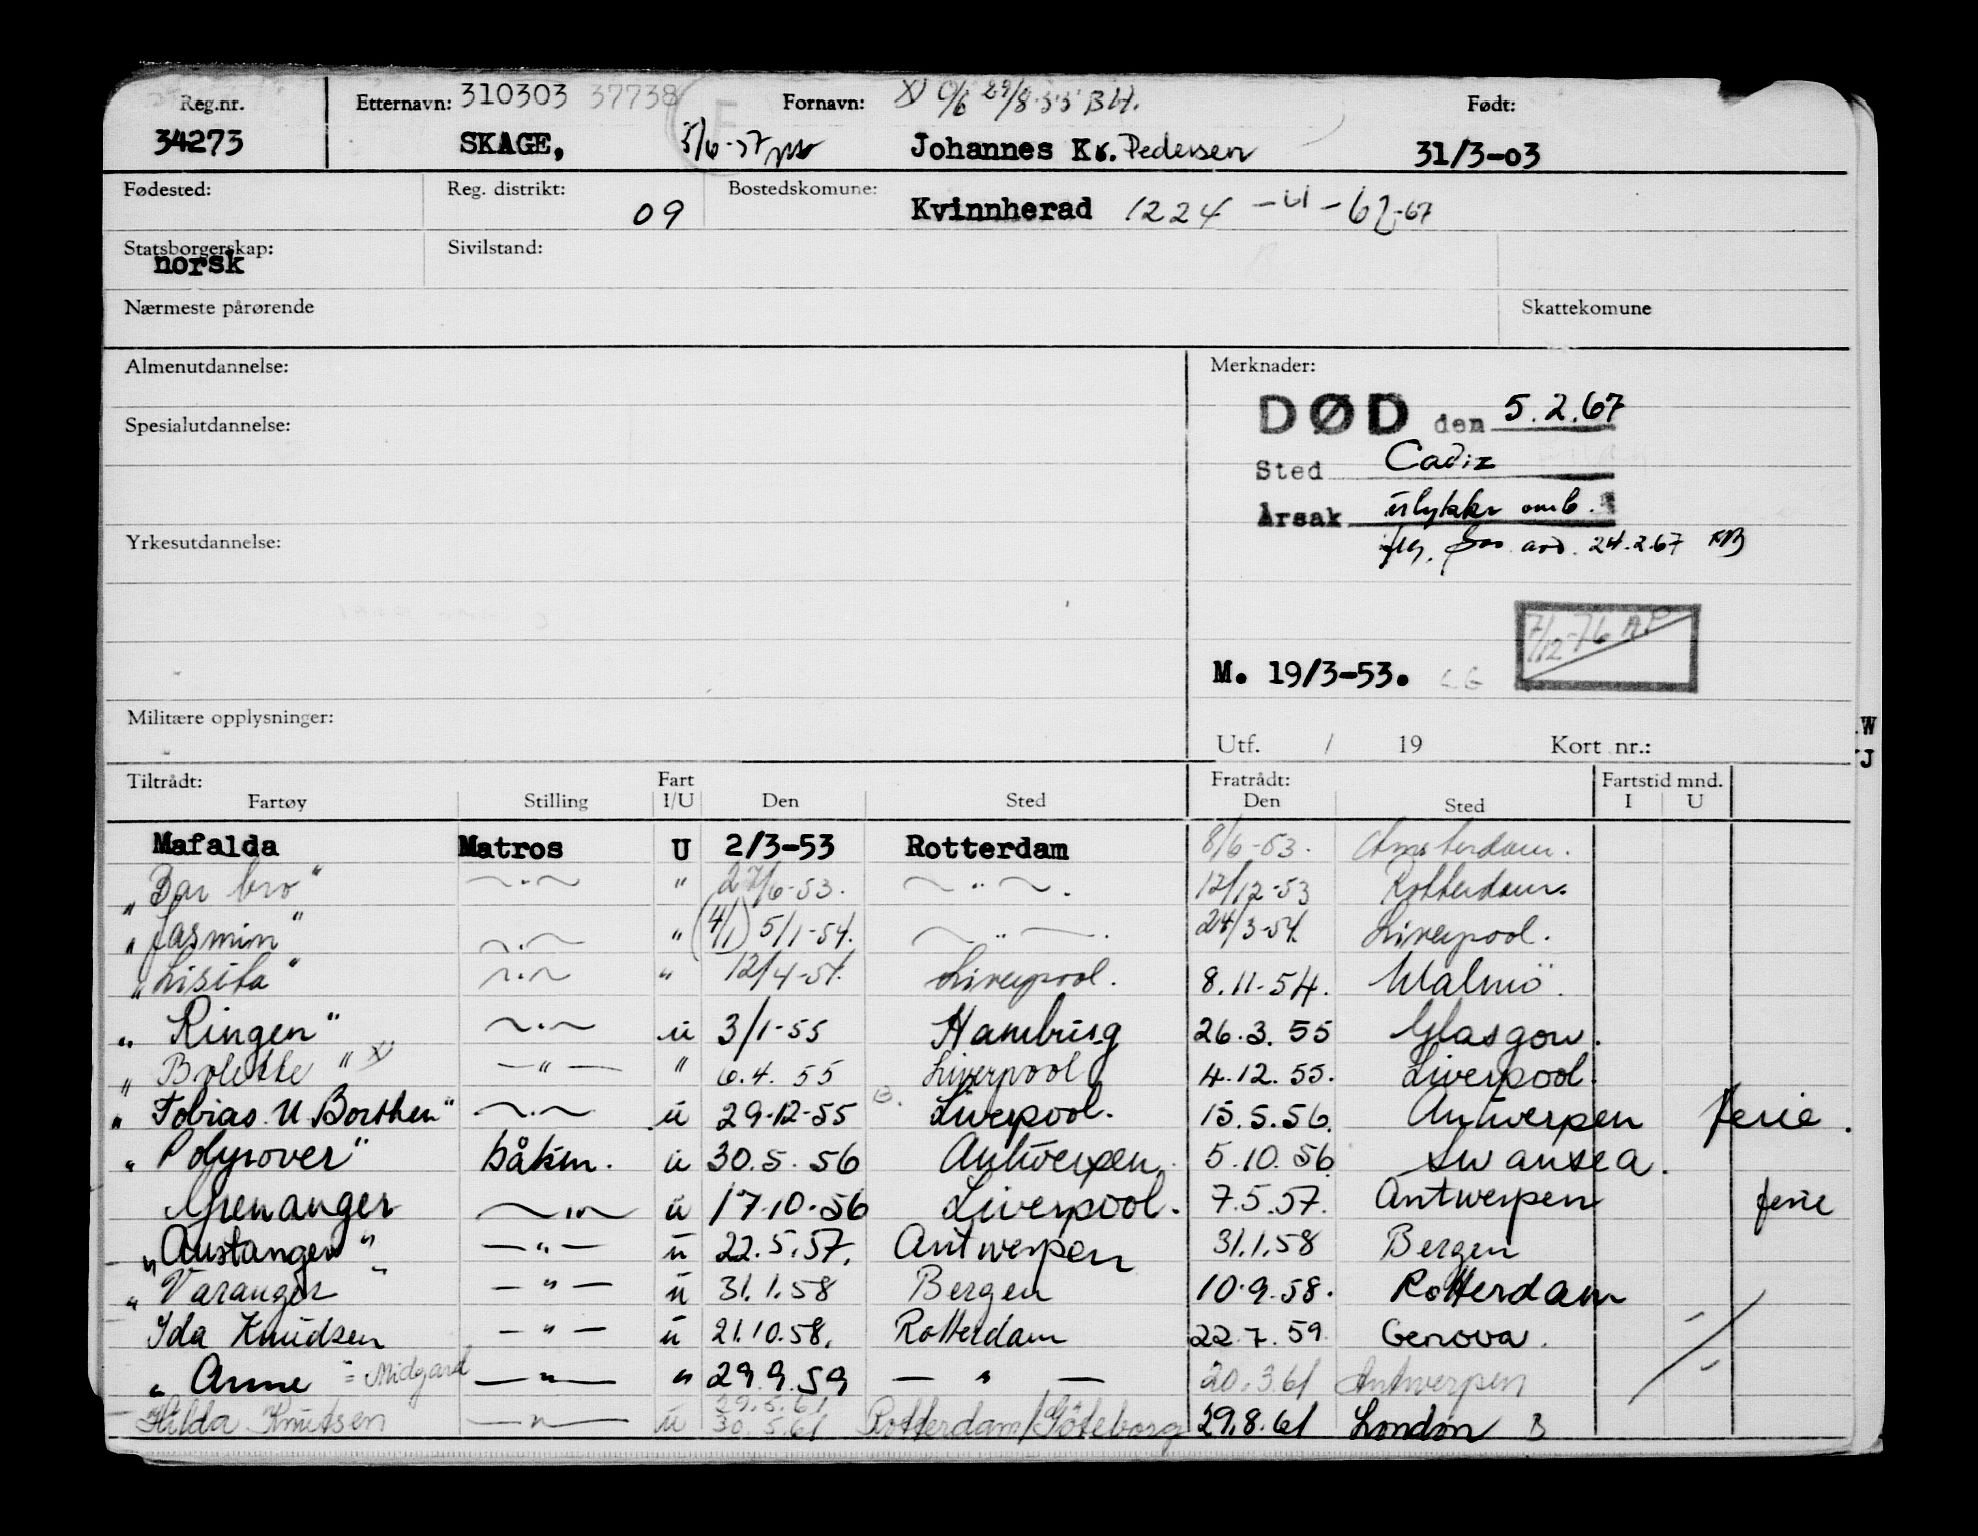 Reg.nr. Etternavn: 310303 37738 Fornavn: Født:
34273 SKAGE, Johannes Kr. Pedersen 31/3-03
Fødested: Reg. distrikt: 09 Bostedskomune: Kvinnherad 1224
Statsborgerskap: norsk Sivilstand:
Nærmeste pårørende Skattekomune
Almenutdannelse: Merknader:
DØD den 5.2.67
Spesialutdannelse:
Sted Cadiz
Årsak ulykke omb.
24.2.67
Yrkesutdannelse:
7/12-76
M. 19/3-53.
Militære opplysninger:
Utf. / 19 Kort nr.:
W
J
Tiltrådt: Fart Fratrådt: Fartstid mnd.
Fartøy Stilling I/U Den Sted Den Sted I U
Mafalda Matros U 2/3-53 Rotterdam 8/6-53. Amsterdam.
"Barbro" — " — " 27/6-53. — " — . 12/12-53 Rotterdam.
"Jasmin" — " — " (4/1) 5/1-54. — " — . 24/3-54. Liverpool.
"Lisita" — " — " 12/4-54. Liverpool. 8.11-54. Malmö.
"Ringen" — " — u 3/1-55 Hamburg 26.3.55 Glasgow.
"Bolette" x) — " — " 6.4.55 Liverpool 4.12.55. Liverpool.
"Tobias U. Borthen" — " — u 29-12-55 Liverpool. 15.5.56. Antwerpen ferie.
"Polyrover" båtsm. u 30.5.56 Antwerpen. 5.10.56 Swansea.
Grenanger — " — u 17.10.56 Liverpool. 7.5.57. Antwerpen ferie
"Austanger" — " — u 22.5.57. Antwerpen 31.1.58 Bergen
"Varanger" — " — u 31.1.58 Bergen 10.9.58. Rotterdam
Ida Knudsen — " — u 21.10.58. Rotterdam 22.7.59. Genova.
" Anne = Midgard — " — " 29.9.59 — " — 20.3.61 Antwerpen
29.5.61
Hilda Knutsen — " — u 30.5.61 Rotterdam/Göteborg 29.8.61 London B